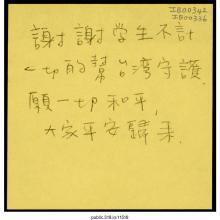 IB00342
IB00336
謝謝学生不計
一切的幫台湾守護
願一切和平,
大家平安歸来.
public.318.io/11519